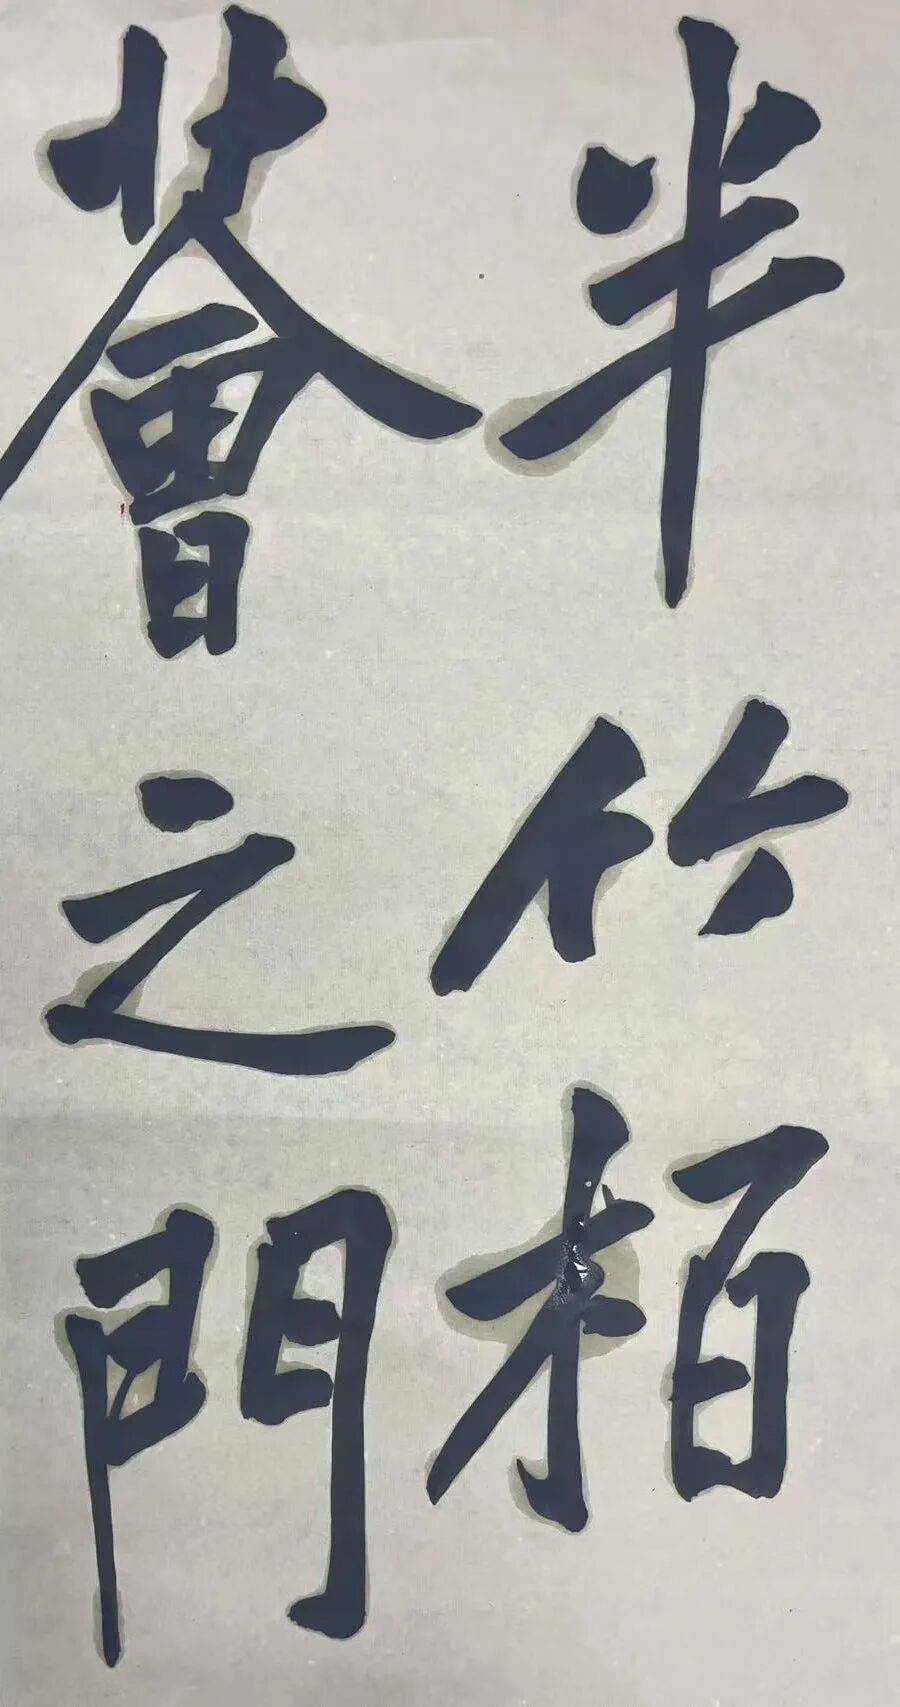 半竹柏
薈之門